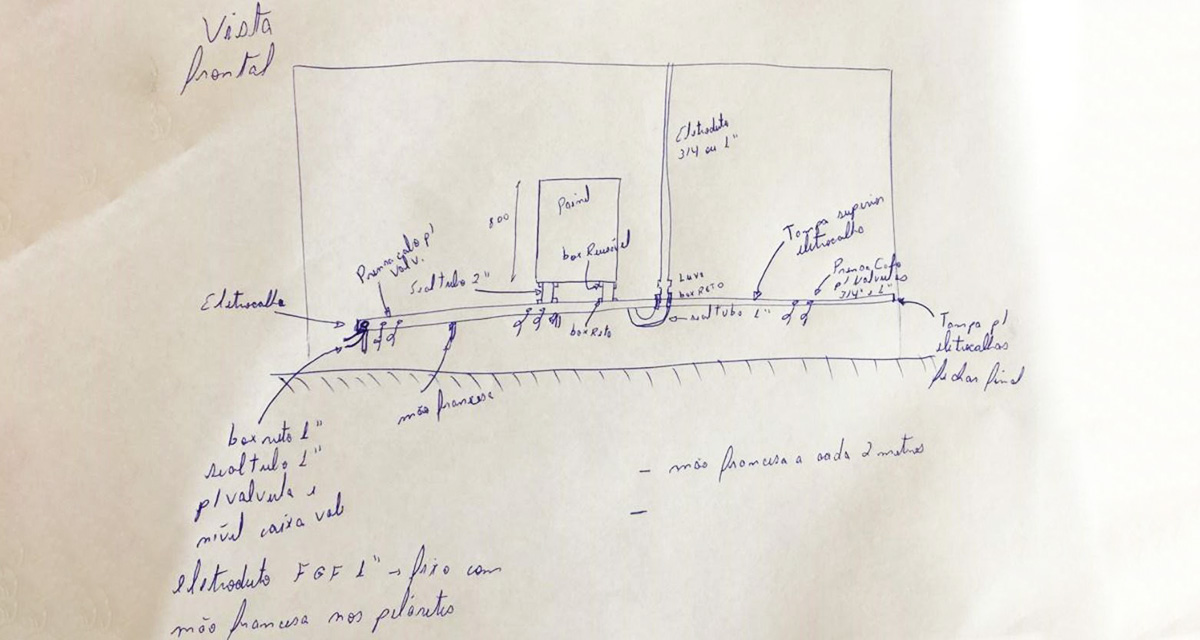 Vista
frontal
Eletroduto
3/4 ou 1"
Painel
800
box Reusável
Tampa superior
eletrocalha
Prensa cabo p/
valv.
Sealtubo 2"
Prensa Cabo
p/ valvulas
3/4" e 1"
Luva
box RETO
Eletrocalha
sealtubo 1"
box Reto
Tampa p/
eletrocalhas
fechar final
mão francesa
box reto 1"
sealtubo 1"
p/ valvula e
nível caixa valv
- mão francesa a cada 2 metros
-
eletroduto FGF 1" → fixo com
mão francesa nos pilaretes